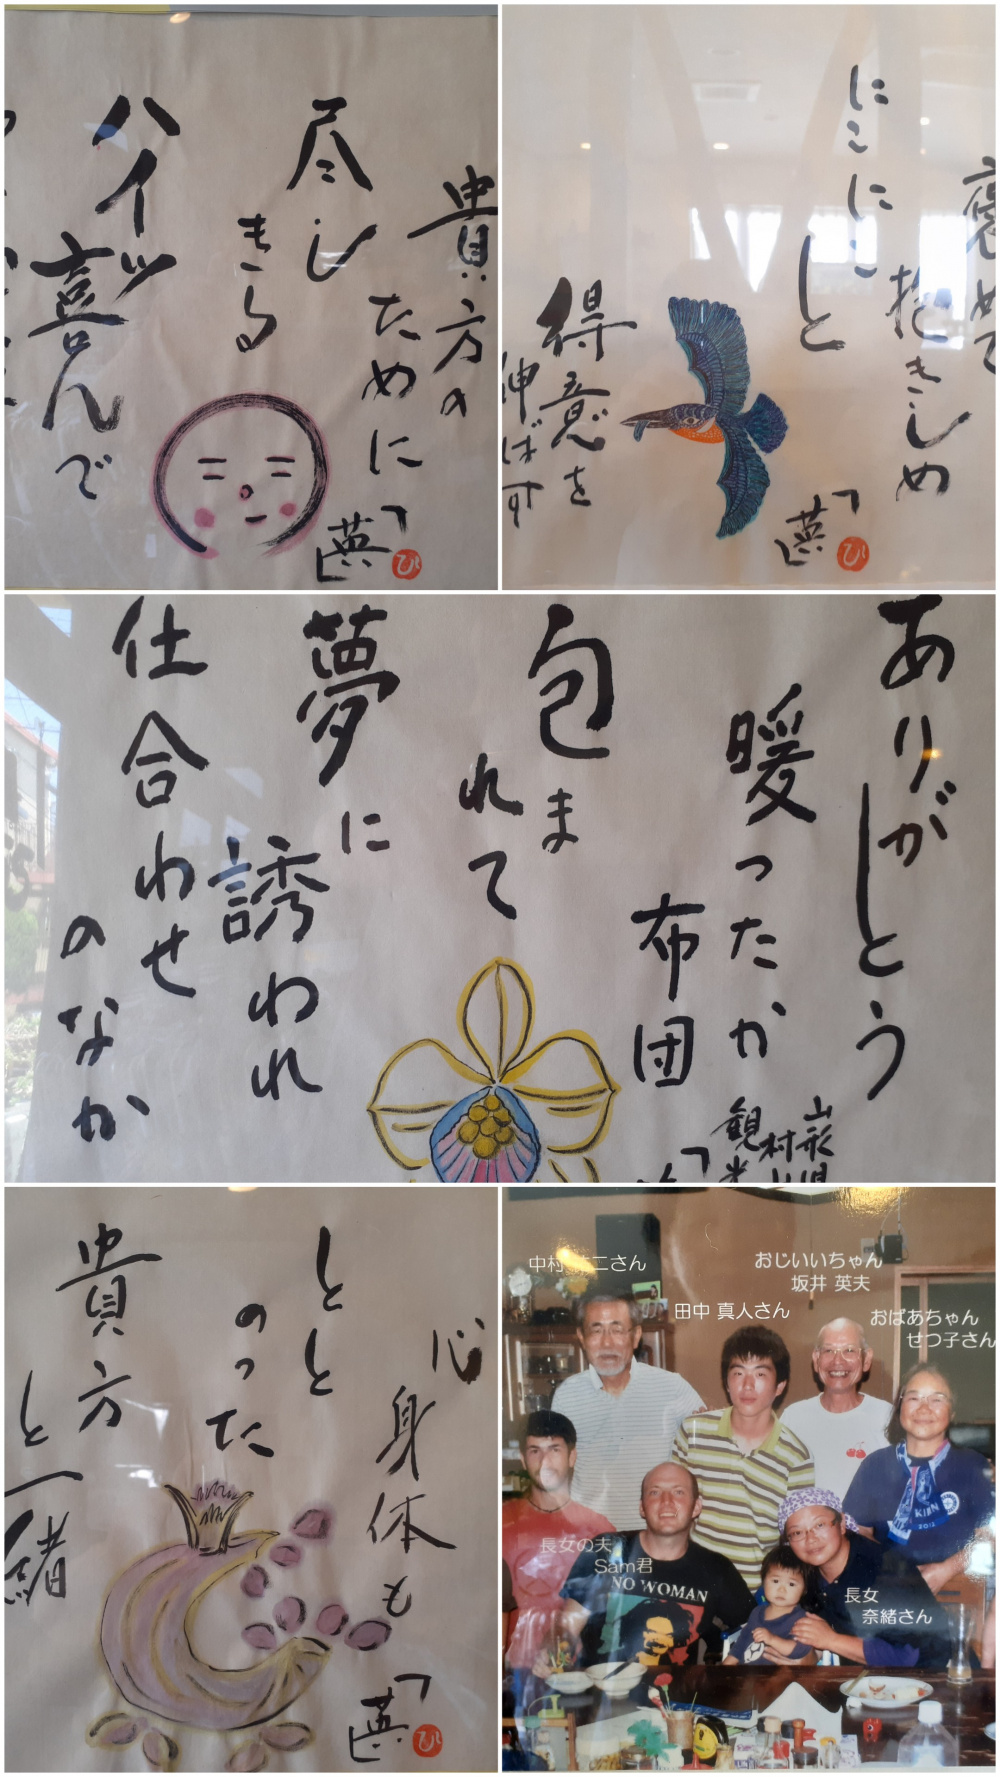 貴方の
ために
尽し
きる
ハイッ
喜んで
「英」
ひ
褒めて
抱きしめ
にこにこ
しと
得意を
伸ばす
「英」
ひ
ありがとう
暖ったか
布団
包ま
れて
夢に
誘われ
仕合わせ
のなか
山形
村山
観光
心
身体も
しとと
のった
貴方
と一緒
「英」
ひ
中村
二さん
おじいいちゃん
坂井 英夫
田中 真人さん
おばあちゃん
せつ子さん
長女の夫
Sam君
NO WOMAN
長女
奈緒さん
KIBN
2012